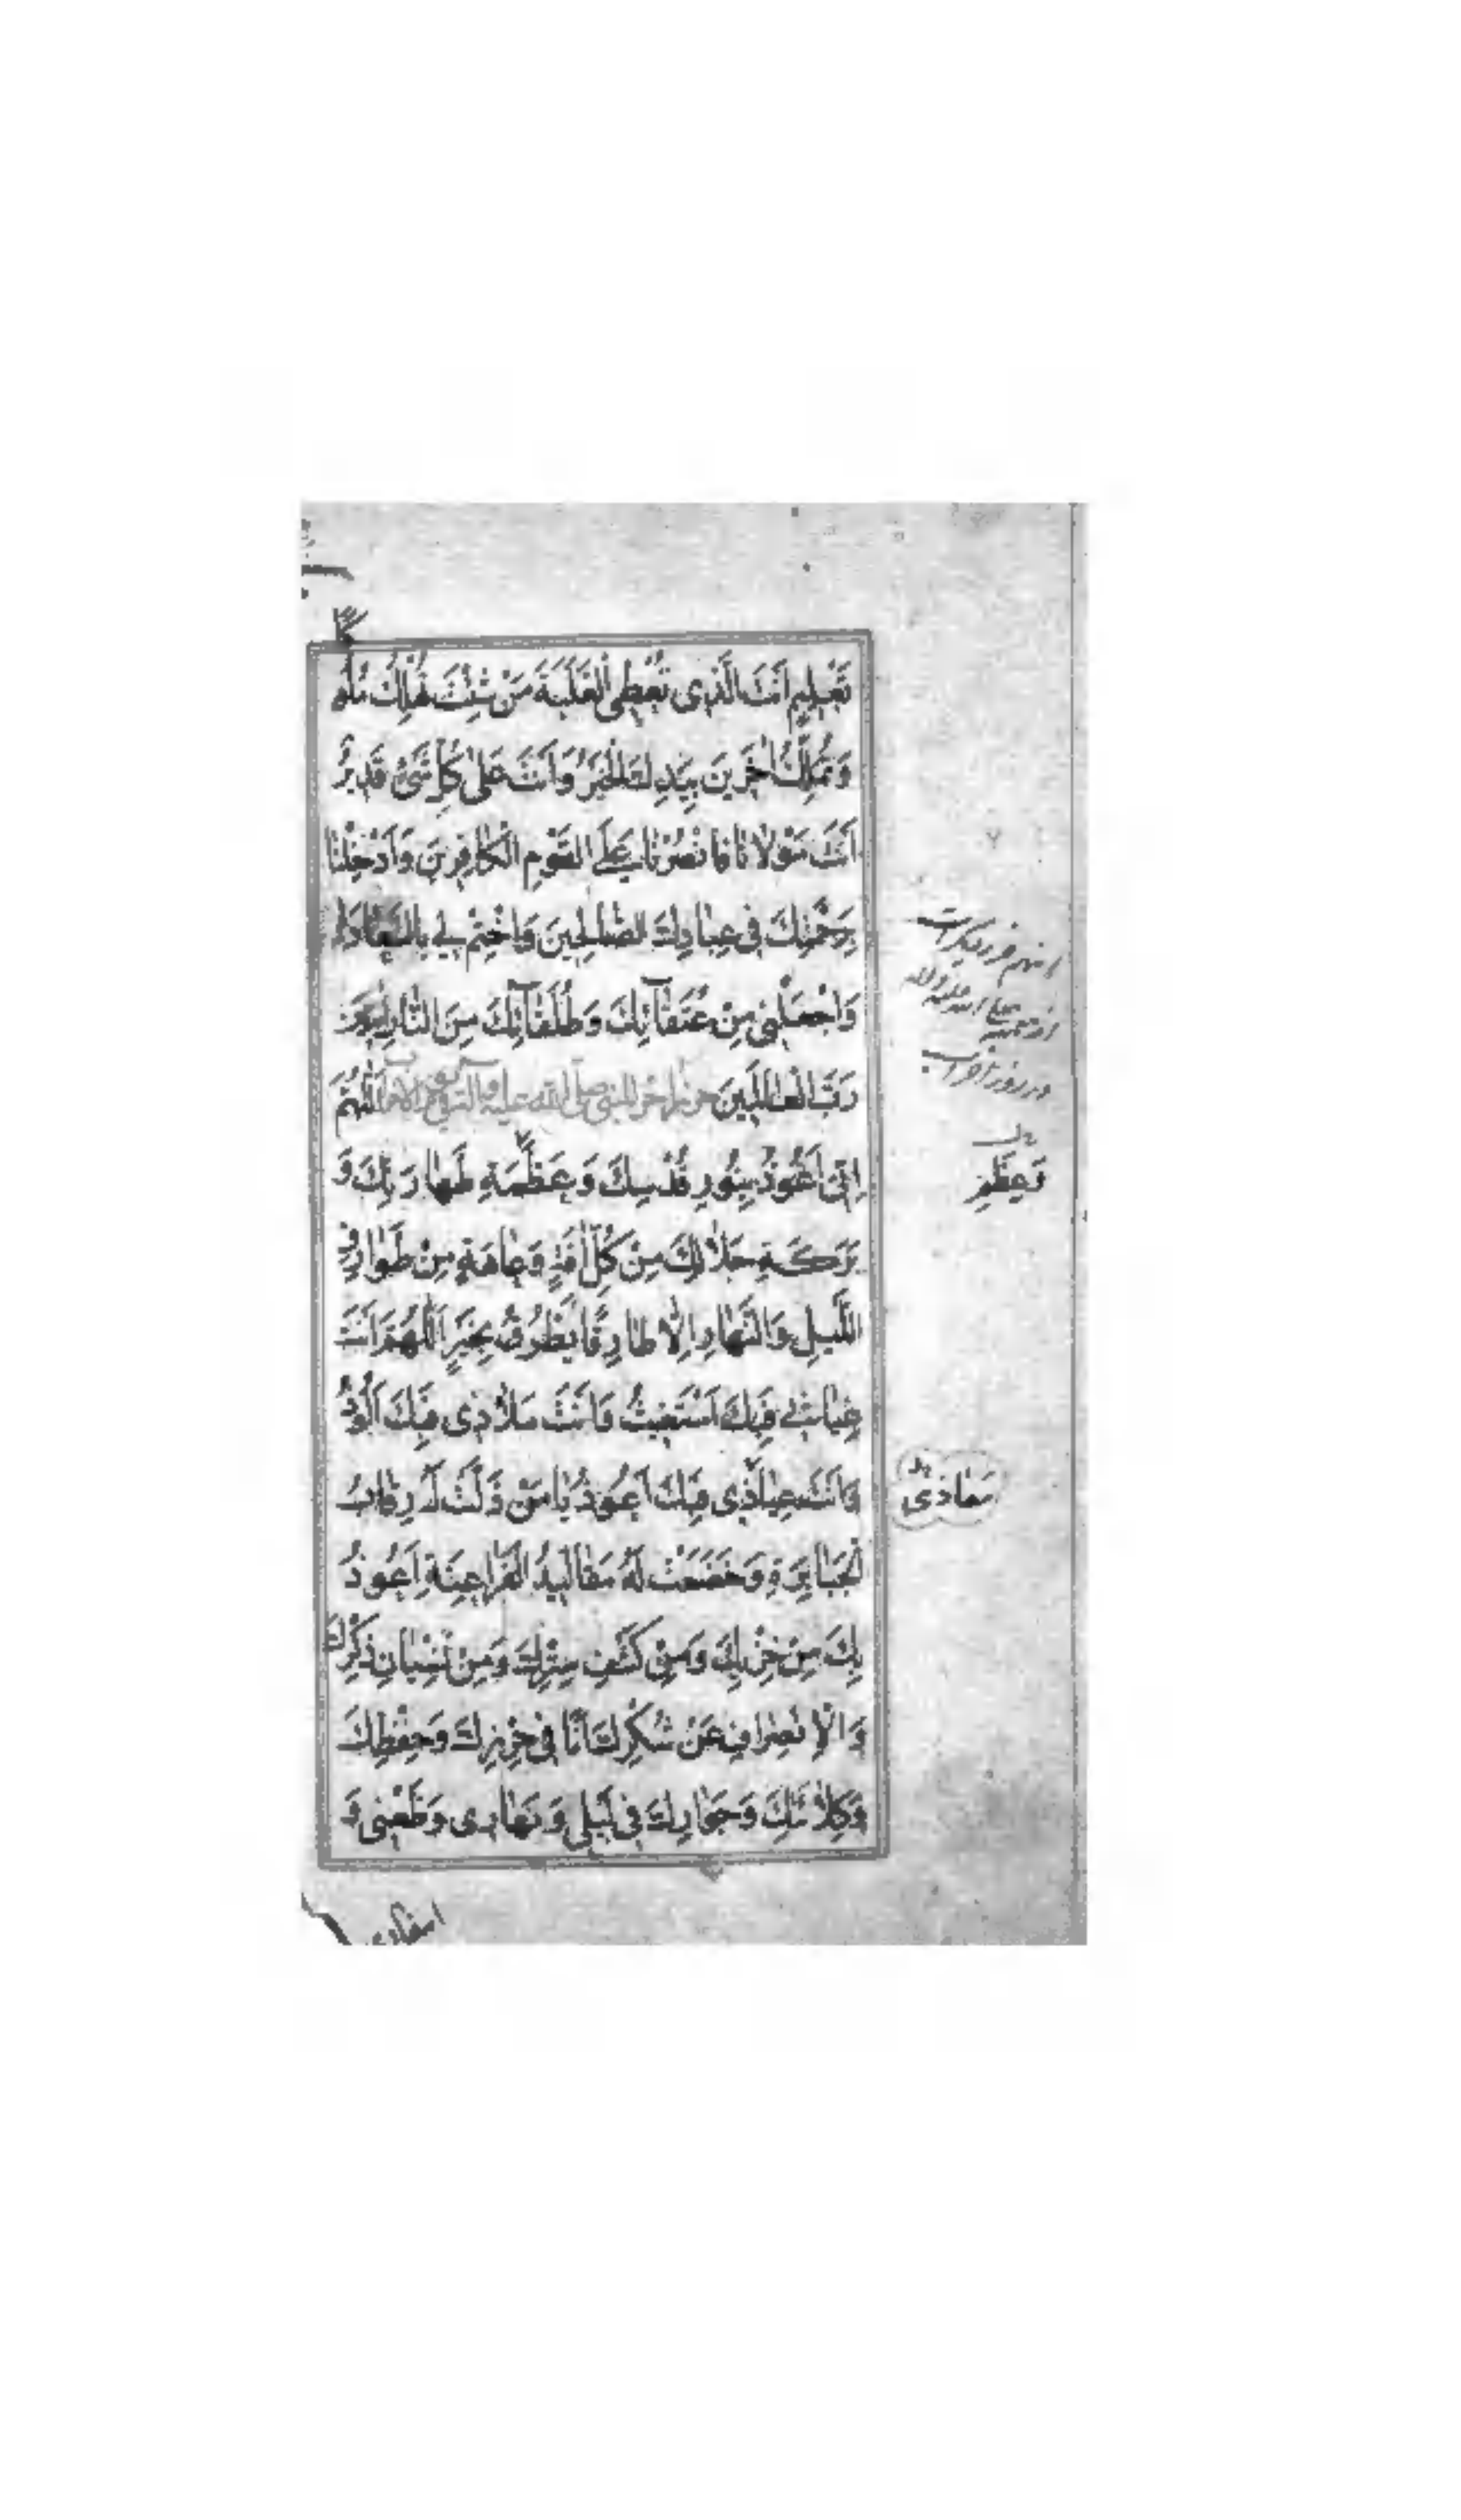 تَعْلِيمٍ اَنْتَ الَّذِى تُعْطِى الْغَلَبَةَ مَنْ شِئْتَ تُهْلِكُ مُلُوكًا
وَتُمَلِّكُ اٰخَرِينَ بِيَدِكَ الْخَيْرُ وَاَنْتَ عَلىٰ كُلِّ شَىْءٍ قَدِيرٌ
اَنْتَ مَوْلٰانٰا فَانْصُرْنٰا عَلَى الْقَوْمِ الْكٰافِرِينَ وَاَدْخِلْنٰا
بِرَحْمَتِكَ فِى عِبٰادِكَ الصّٰالِحِينَ وَاخْتِمْ لِى بِالسَّعٰادَةِ
وَاجْعَلْنِى مِنْ عُتَقٰآئِكَ وَطُلَقٰآئِكَ مِنَ النّٰارِ اٰمِينَ
رَبَّ الْعٰالَمِينَ حرز اخر للنبى صلى الله عليه وآله يوم الاحزاب اَللّٰهُمَّ
اِنِّى اَعُوذُ بِنُورِ قُدْسِكَ وَعَظَمَةِ طَهٰارَتِكَ وَ
بَرَكَةِ جَلٰالِكَ مِنْ كُلِّ اٰفَةٍ وَعٰاهَةٍ مِنْ طَوٰارِقِ
اللَّيْلِ وَالنَّهٰارِ اِلّٰا طٰارِقًا يَطْرُقُ بِخَيْرٍ اَللّٰهُمَّ اَنْتَ
غِيٰاثِى فَبِكَ اَسْتَغِيثُ وَاَنْتَ مَلٰاذِى فَبِكَ اَلُوذُ
وَاَنْتَ عِيٰاذِى فَبِكَ اَعُوذُ يٰا مَنْ ذَلَّتْ لَهُ رِقٰابُ
الْجَبٰابِرَةِ وَخَضَعَتْ لَهُ مَقٰالِيدُ الْفَرٰاعِنَةِ اَعُوذُ
بِكَ مِنْ خِزْيِكَ وَمِنْ كَشْفِ سِتْرِكَ وَمِنْ نِسْيٰانِ ذِكْرِكَ
وَالْاِنْصِرٰافِ عَنْ شُكْرِكَ اَنَا فِى حِرْزِكَ وَحِفْظِكَ
وَكِلٰائَتِكَ وَجِوٰارِكَ فِى لَيْلِى وَنَهٰارِى وَظَعْنِى وَ
در روز احزاب
تَعْظِيمٍ
مَعٰاذِى